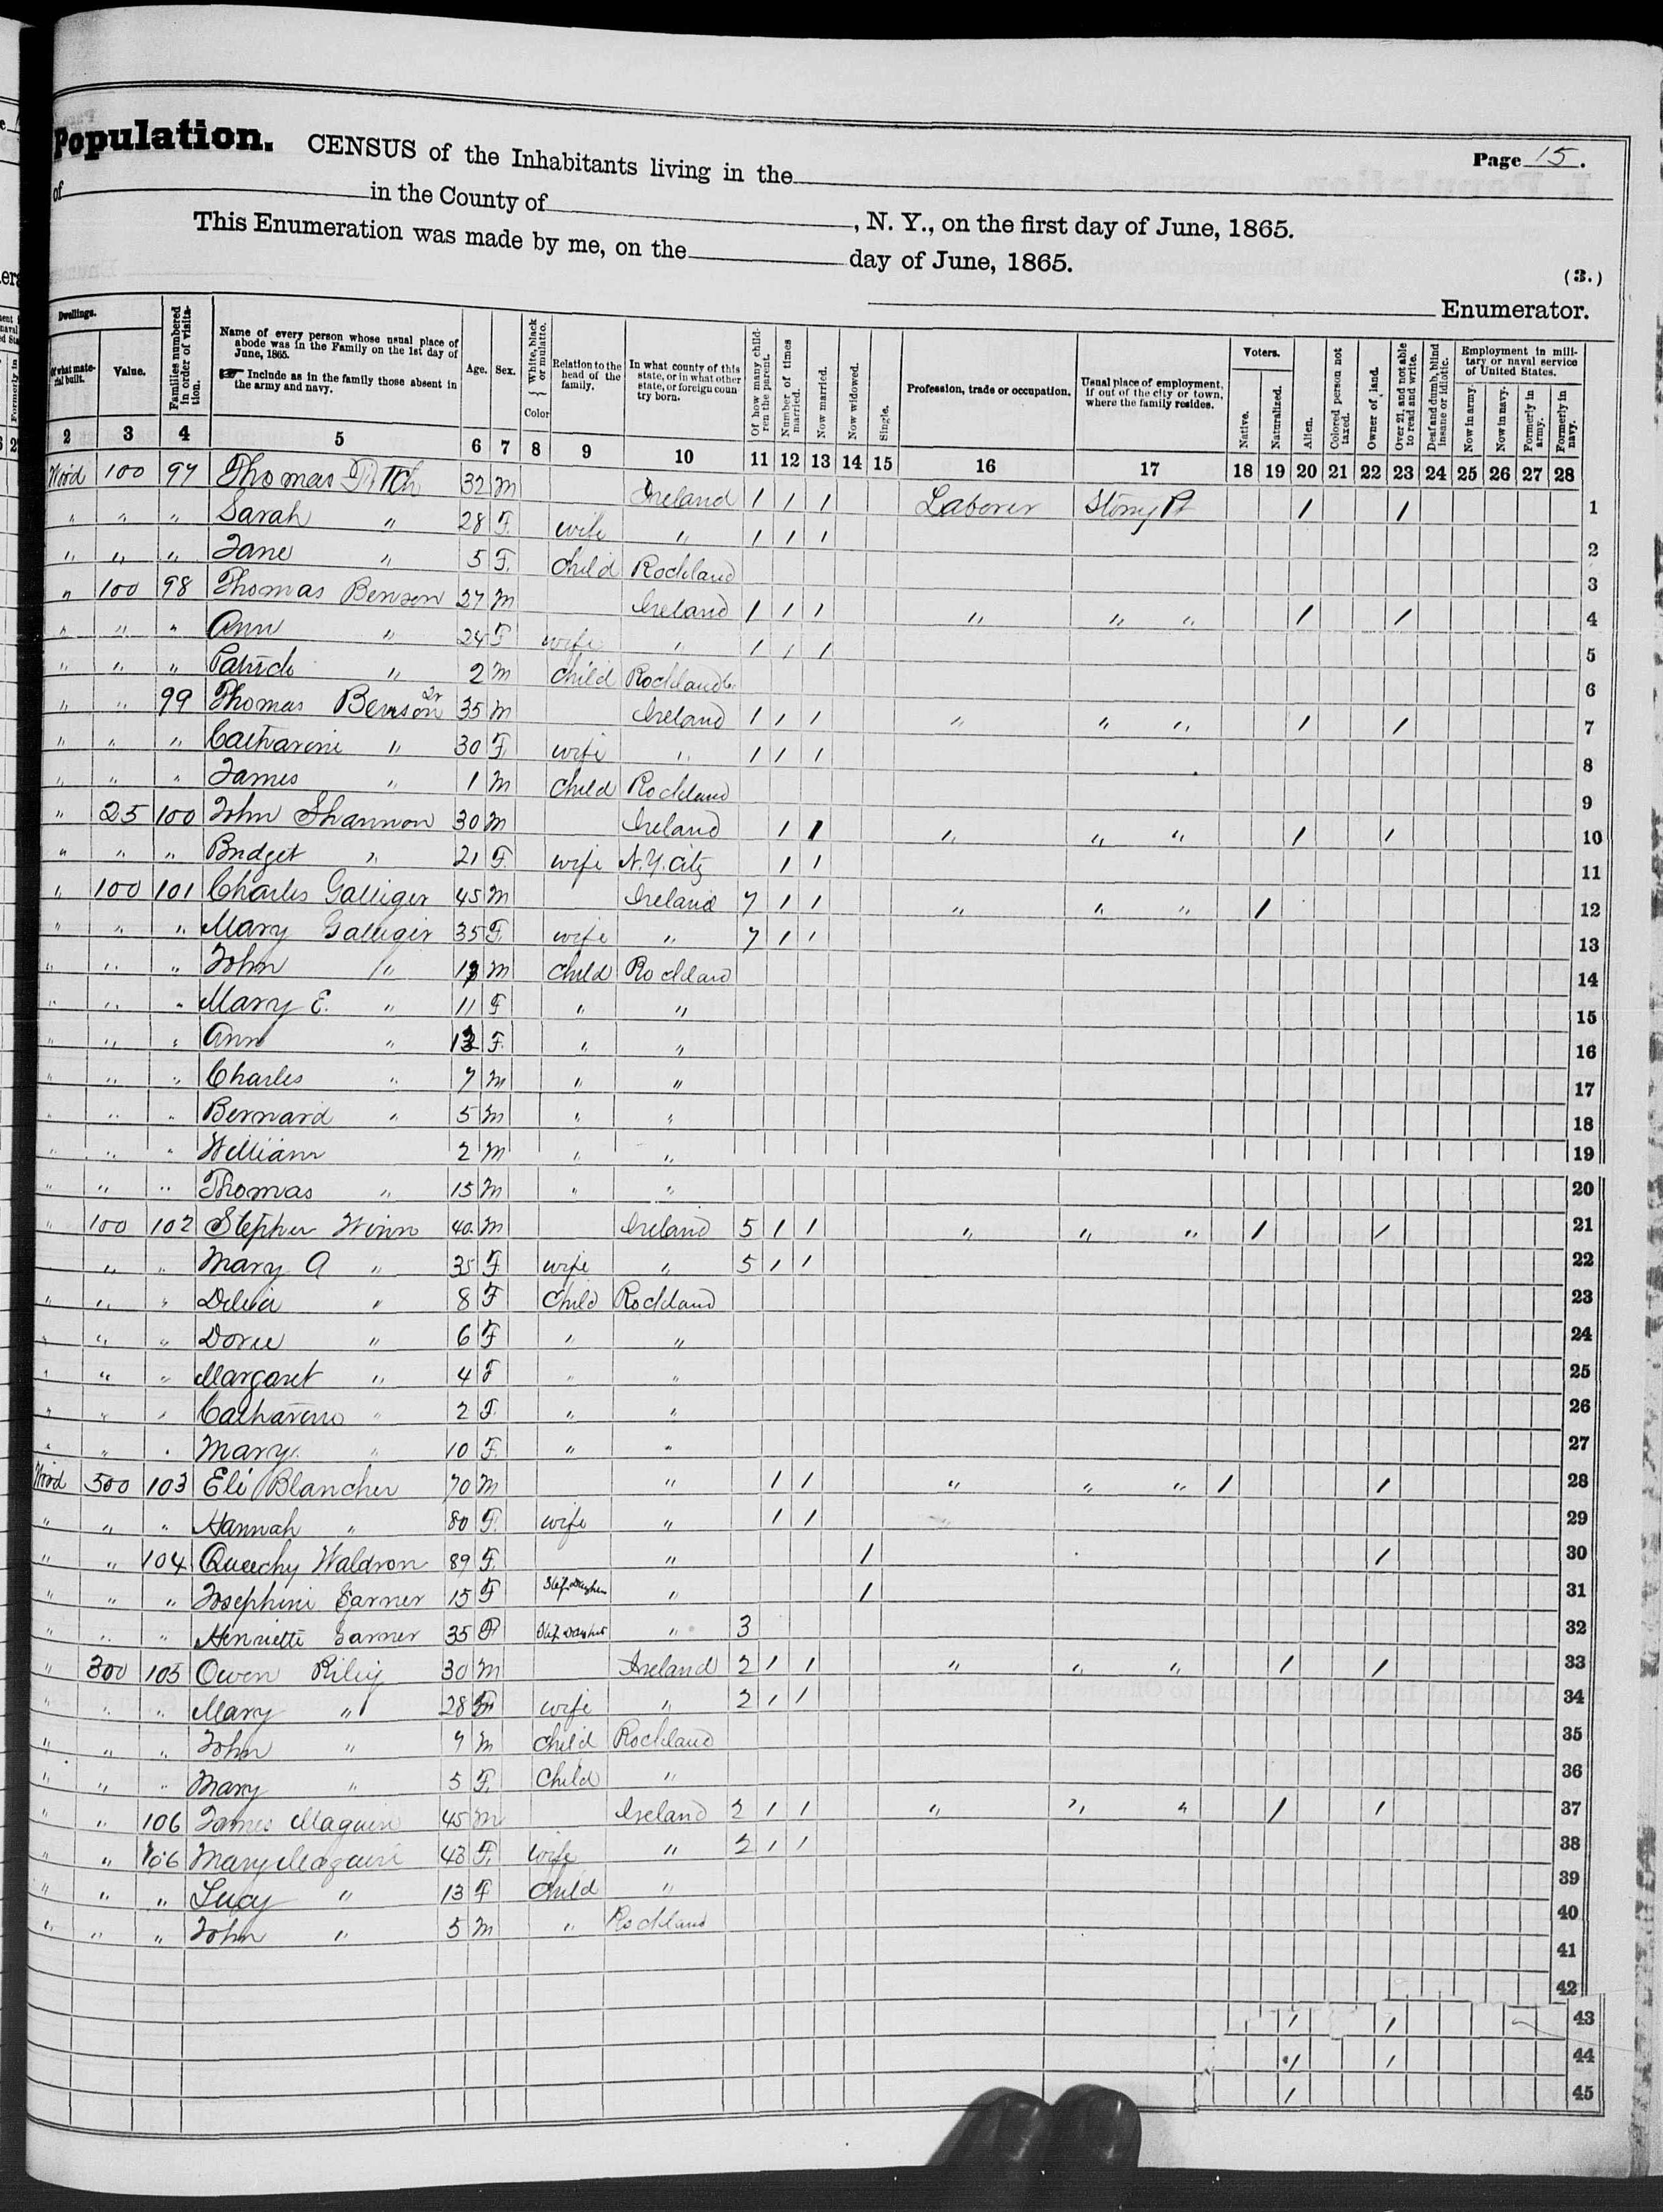 Population. CENSUS of the Inhabitants living in the
Page 15.
of in the County of , N. Y., on the first day of June, 1865.
This Enumeration was made by me, on the day of June, 1865.
(3.)
Enumerator.
Dwellings. Of what material built. Value. Families numbered in order of visitation. Name of every person whose usual place of abode was in the Family on the 1st day of June, 1865. ☞ Include as in the family those absent in the army and navy. Age. Sex. White, black or mulatto. Color Relation to the head of the family. In what county of this state, or in what other state, or foreign coun try born. Of how many children the parent. Number of times married. Now married. Now widowed. Single. Profession, trade or occupation. Usual place of employment, if out of the city or town, where the family resides. Voters. Native. Naturalized. Alien. Colored person not taxed. Owner of land. Over 21, and not able to read and write. Deaf and dumb, blind insane or idiotic. Employment in military or naval service of United States. Now in army. Now in navy. Formerly in army. Formerly in navy.
2 3 4 5 6 7 8 9 10 11 12 13 14 15 16 17 18 19 20 21 22 23 24 25 26 27 28
Wood 100 97 Thomas 32 M Ireland 1 1 1 Laborer Stony Pt 1 1 1
" " " Sarah " 28 F. wife " 1 1 1 2
" " " Jane " 5 F. Child Rockland 3
" 100 98 Thomas Benson 27 M Ireland 1 1 1 " " " 1 1 4
" " " Ann " 24 F wife " 1 1 1 5
" " " Patrick " 2 M Child Rockland 6
" " 99 Thomas Benson 35 M Ireland 1 1 1 " " " 1 1 7
" " " Catharine " 30 F. wife " 1 1 1 8
" " " James " 1 M Child Rockland 9
" 25 100 John Shannon 30 M Ireland 1 1 " " " 1 1 10
" " " Bridget " 21 F. wife N.Y. City 1 1 11
" 100 101 Charles Galliger 45 M Ireland 7 1 1 " " " 1 12
" " " Mary Galliger 35 F. wife " 7 1 1 13
" " " John " M Child Rockland 14
" " " Mary E. " 11 F " " 15
" " " Ann " F. " " 16
" " " Charles " 7 M " " 17
" " " Bernard " 5 M " " 18
" " " William 2 M " " 19
" " " Thomas " 15 M " " 20
" 100 102 Stephen Winn 40 M Ireland 5 1 1 " " " 1 1 21
" " Mary A " 35 F wife " 5 1 1 22
" " " Delia " 8 F Child Rockland 23
" " " " 6 F " " 24
" " " Margaret " 4 F " " 25
" " " Catharine " 2 F. " " 26
" " " Mary. " 10 F. " " 27
Wood 500 103 Eli Blancher 70 M " 1 1 " " " 1 1 28
" " " Hannah " 80 F. wife " 1 1 29
" " 104 Waldron 89 F. " 1 1 30
" " " Josephine Garner 15 F Step Daughter " 1 31
" " " Henriette Garner 35 Step Daughter " 3 32
" 300 105 Owen Riley 30 M Ireland 2 1 1 " " " 1 1 33
" " " Mary " 28 F wife " 2 1 1 34
" " " John " M Child Rockland 35
" " " Mary " 5 F. Child " 36
" " 106 James Maguire 45 M Ireland 2 1 1 " " " 1 1 37
" " 106 Mary Maguire 43 F. wife " 2 1 1 38
" " " Lucy " 13 F Child " 39
" " " John " 5 M " Rockland 40
41
42
1 1 43
1 1 44
1 45